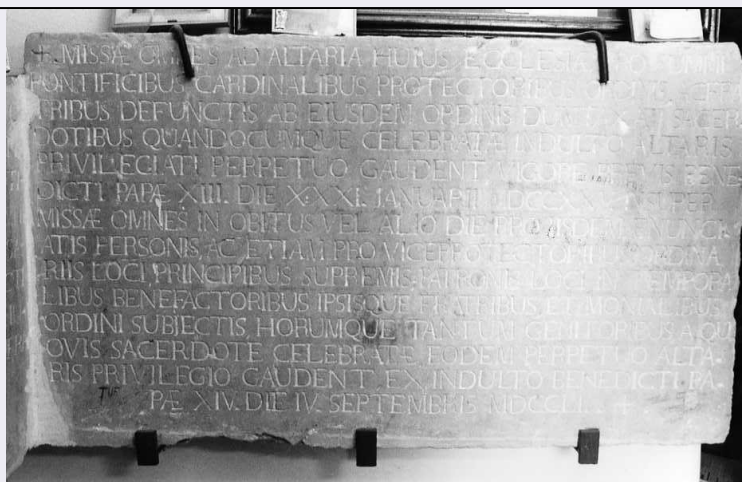 +. MISSÆ OMNES AD ALTARIA HUIUS ECCLESIÆ OMNI
PONTIFICIBUS CARDINALIBUS PROTECTORIBUS
TRIBUS DEFUNCTIS AB EIUSDEM ORDINIS SACER
DOTIBUS QUANDOCUMQUE CELEBRATÆ INDULTO ALTARIS
PRIVILEGIATI PERPETUO GAUDENT VIGORE BENE
DICTI PAPÆ XIII. DIE XXXI. JANUARII INSUPER
MISSÆ OMNES IN OBITUS VEL ALIO DIE PRO NUNCU
ATIS PERSONIS, AC ETIAM PRO VICEPROTECTORIBUS ORDINA
RIIS LOCI, PRINCIPIBUS SUPREMIS PATRONIS LOCI IN TEMPORA
LIBUS BENEFACTORIBUS IPSISQUE FRATRIBUS, ET MONIALIBUS
ORDINI SUBJECTIS, HORUMQUE TANTUM GENITORIBUS A QU
OVIS SACERDOTE CELEBRATÆ EODEM PERPETUO ALTA-
RIS PRIVILEGIO GAUDENT EX INDULTO BENEDICTI PA-
PÆ XIV. DIE IV. SEPTEMBRIS